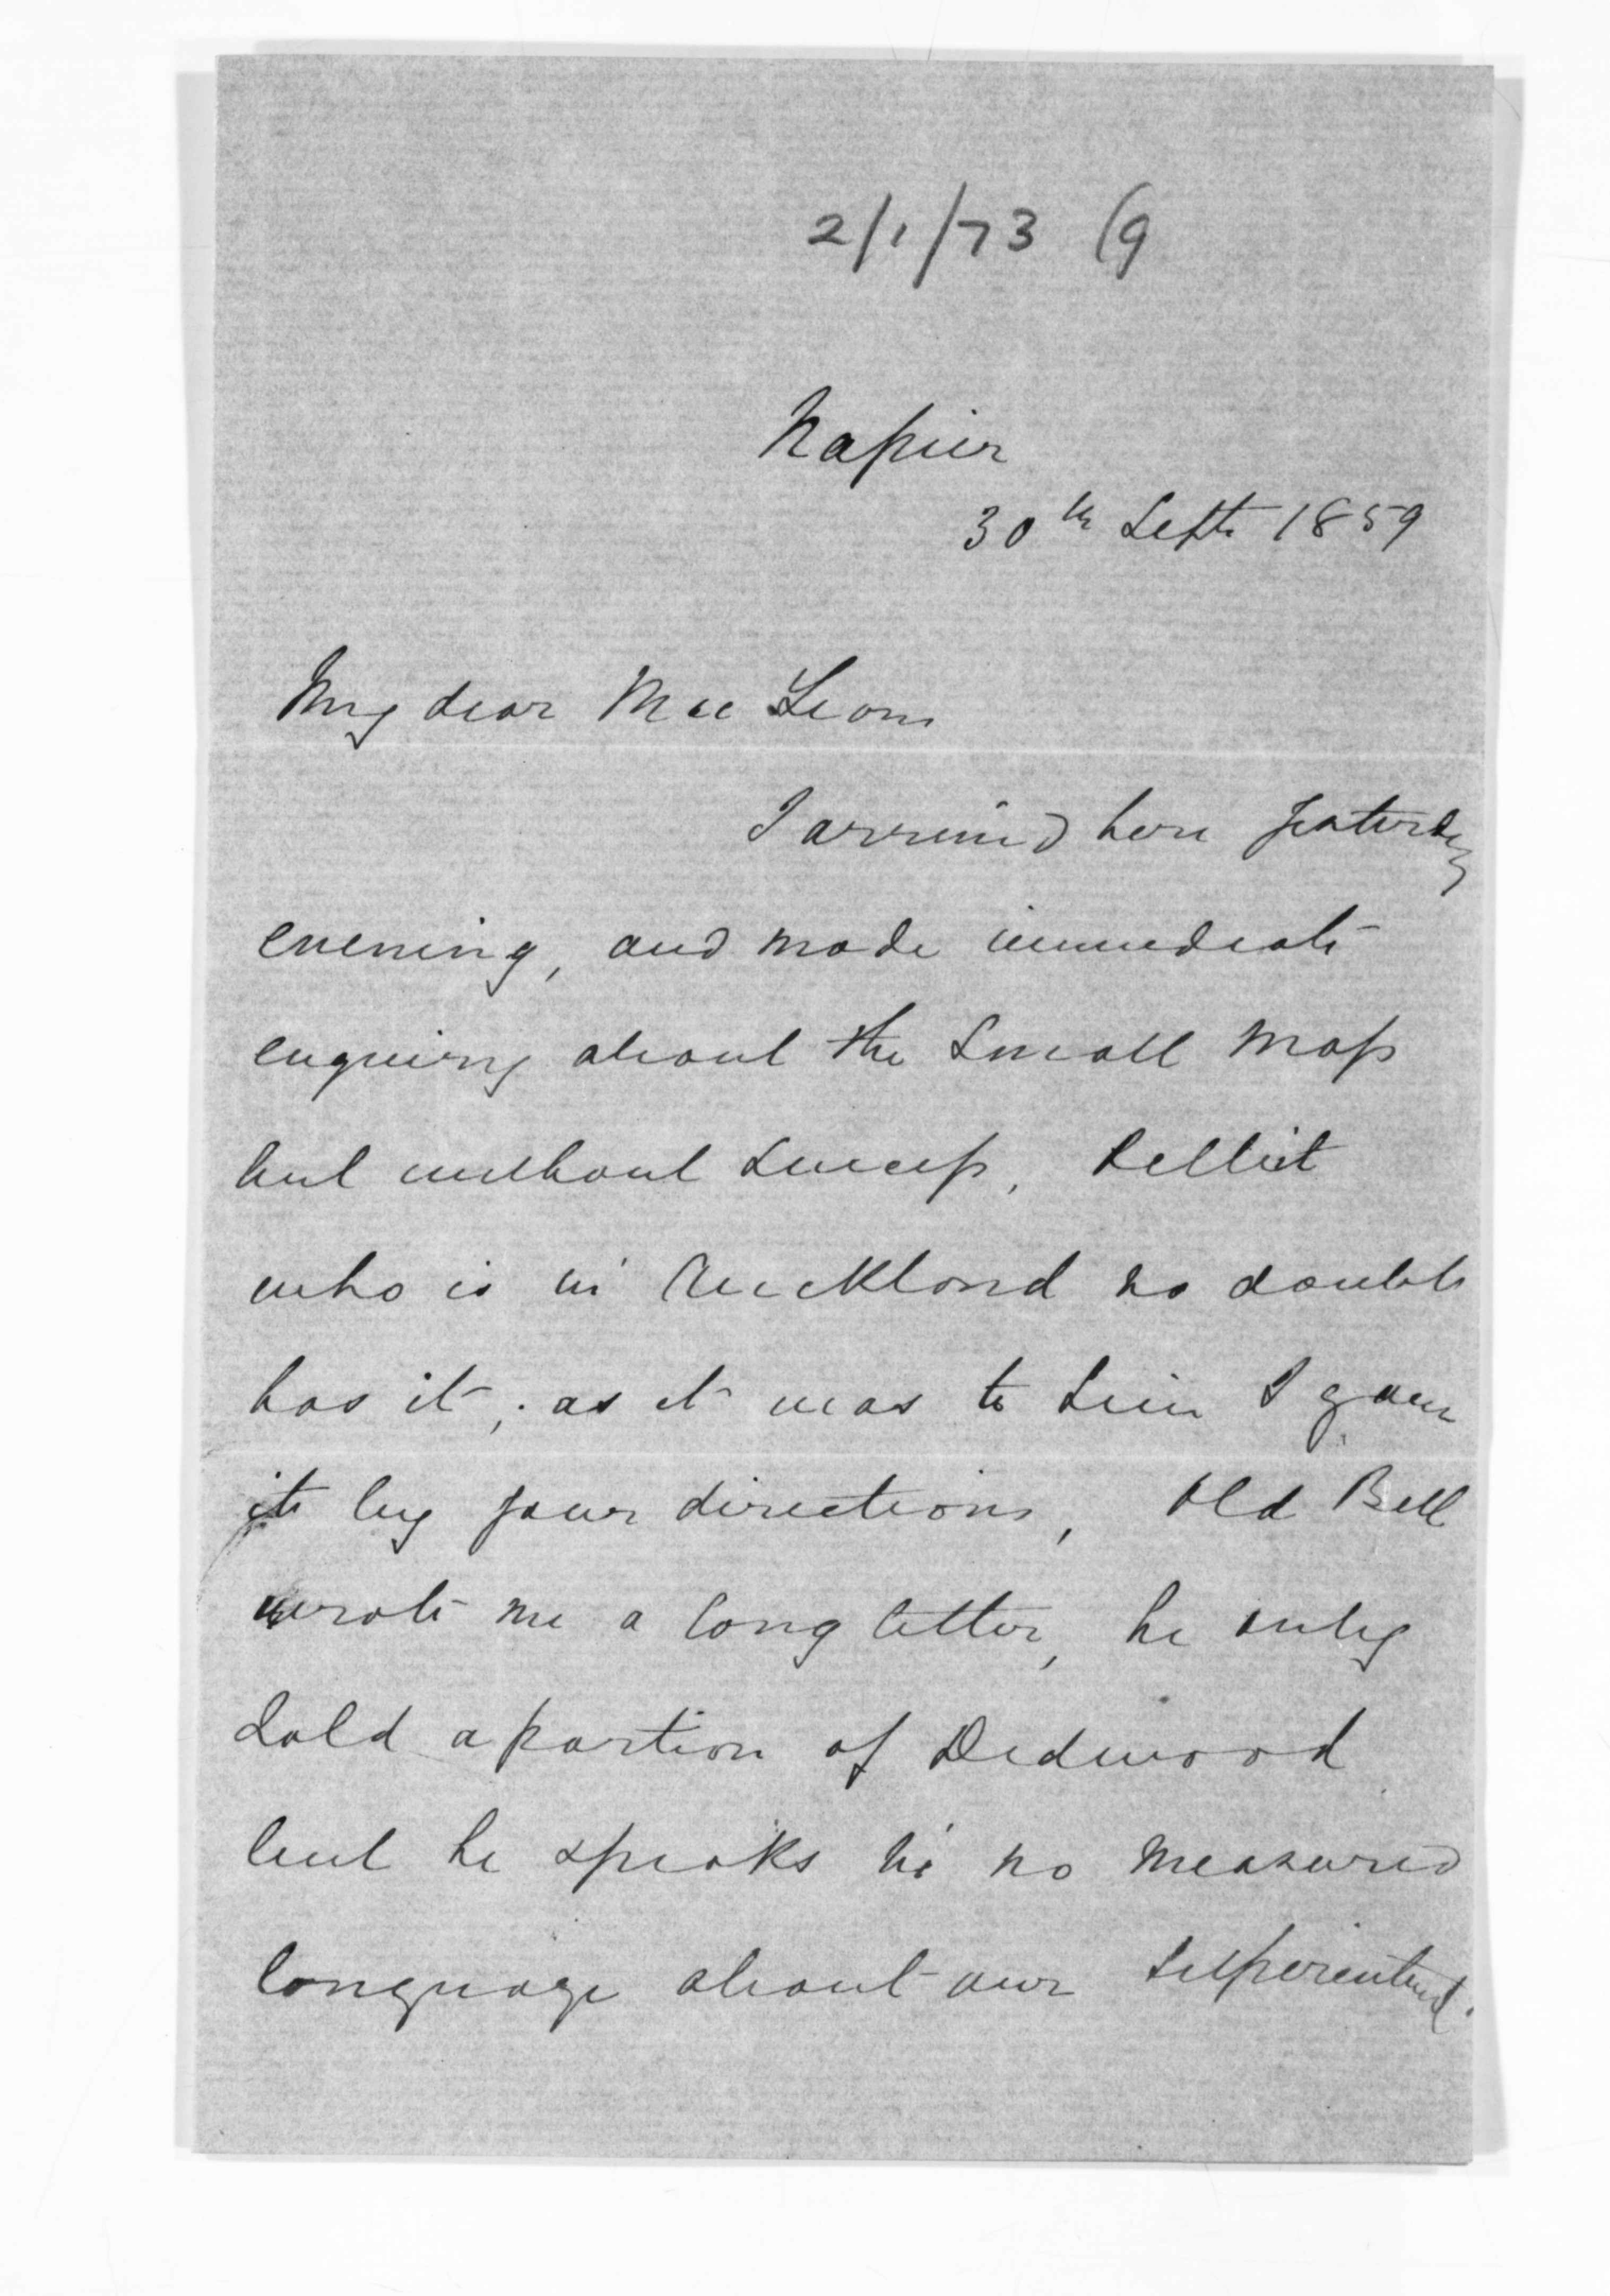 2/1/73 (9
Napier
30th Septr 1859
My dear Mac Lean
I arrived here yesterday
evening, and made immediate
enquiry about the small map
but without success,
who is in Auckland no doubt
has it, as it was to him I gave
it by your directions, Old Bell
wrote me a long letter, he only
sold a portion of
but he speaks in no measured
language about our Superintendt.